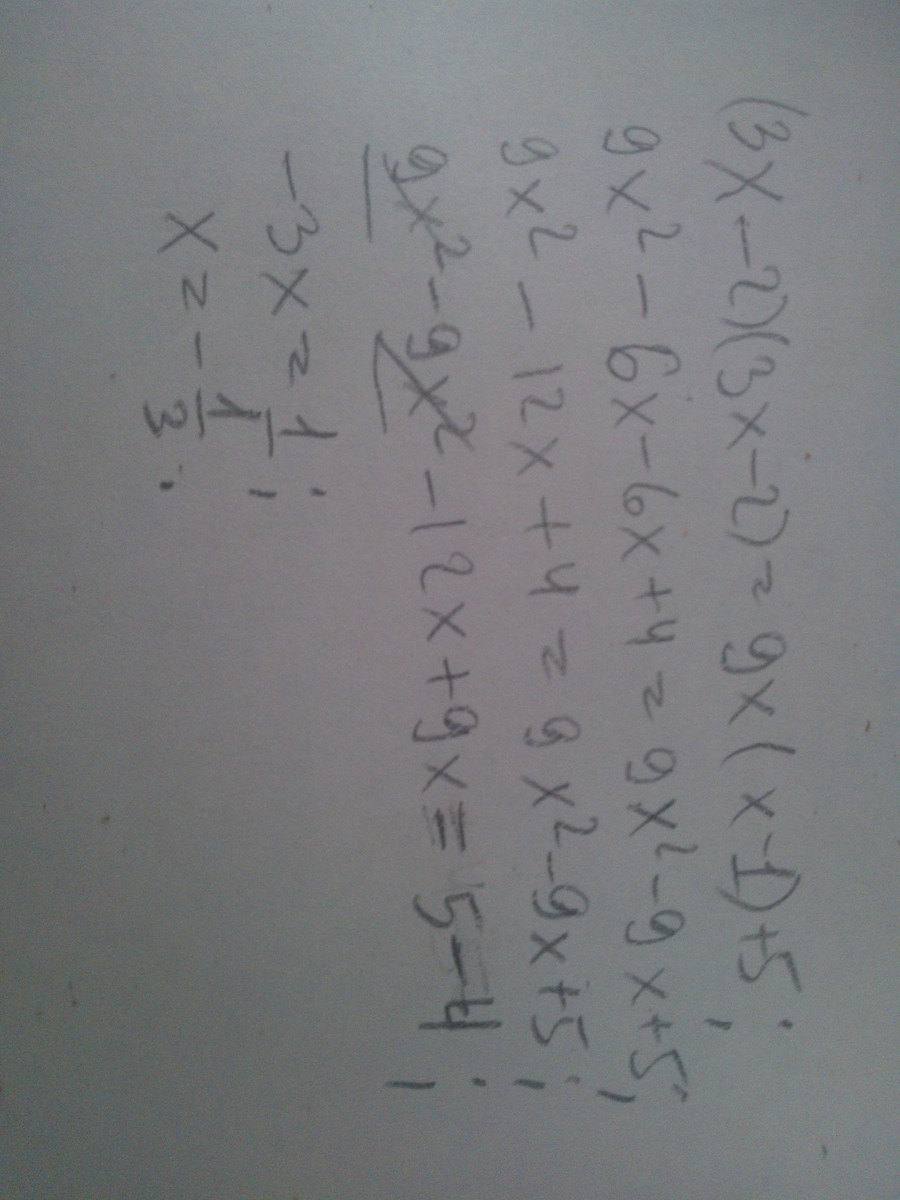 (3x-2)(3x-2)=9x(x-1)+5;
9x²-6x-6x+4=9x²-9x+5;
9x²-12x+4=9x²-9x+5;
9x²-9x²-12x+9x=5-4;
-3x=1;
x=-1/3.